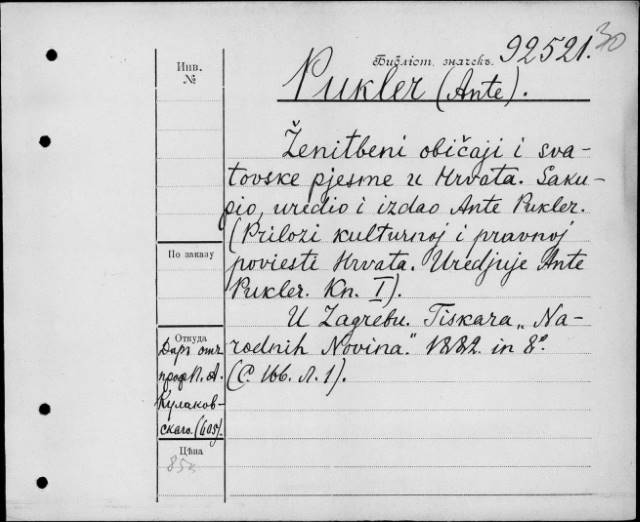 Инв.
№
Библіот. значекъ. 92521.
30
Pukler (Ante).
Ženitbeni običaji i sva-
tovske pjesme u Hrvata. Saku-
pio, uredio i izdao Ante Pukler.
(Prilozi kulturnoj i pravnoj
poviesti Hrvata. Uredjuje Ante
Pukler. Kn. I).
U Zagrebu. Tiskara „Na-
rodnih Novina.” 1882. in 8°.
(С. 166. Л. 1).
По заказу
Откуда
Даръ отъ
проф. П. А.
Кулаков-
скаго. (605).
Цѣна
85к